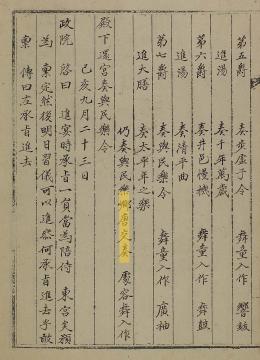 第五爵 奏步虛子令 舞童入作 響鈸
進湯 奏千年萬歲
第六爵 奏井邑慢機 舞童入作 舞鼓
進湯 奏淸平曲
第七爵 奏與民樂令 舞童入作 廣袖
進大膳 奏太平年之樂
仍奏與民樂 處容舞入作
殿下還宮奏與民樂令
己亥九月二十三日
政院 啓曰 進宴時承旨一員當爲陪侍 東宮矣
爲 稟定然後明日習儀可以進參何承旨進去乎敢
稟 傳曰左承旨進去